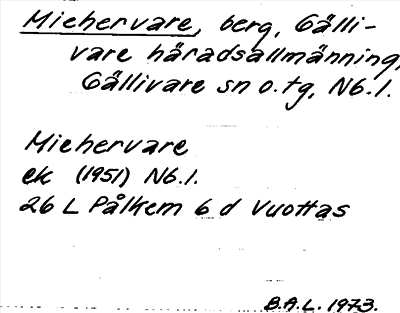 Miehervare, berg, Gälli-
vare häradsallmänning,
Gällivare sn o. tg, Nb. l.
Miehervare
ek (1951) Nb. l.
26 L Pålkem 6 d Vuottas
B.A.L. 1973.